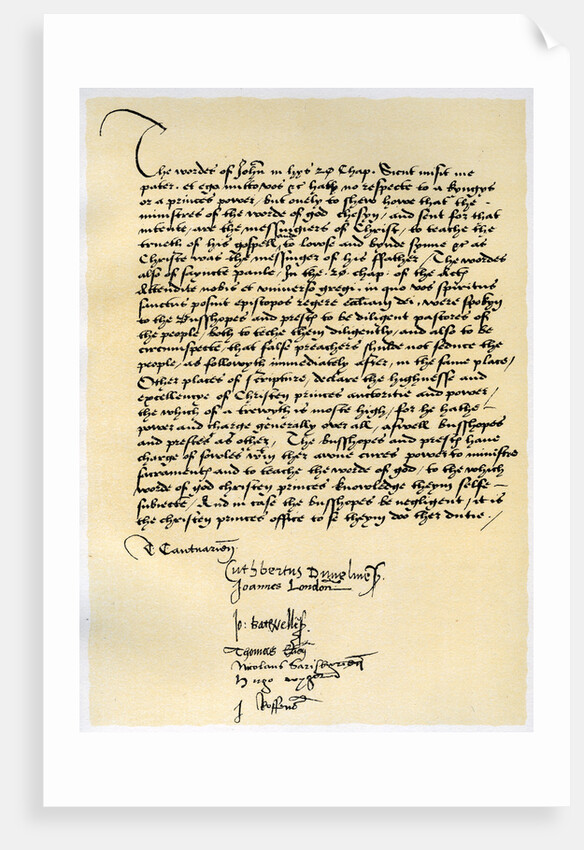 The wordes of John in hys 20 Chap. Sicut misit me
pater. et ego mitto vos &c hath no respecte to a kyngys
or a princes power / but onely to shew howe that the
ministres of the worde of god chosyn / and sent for that
intente / are the messingiers of Christ, to teache the
trueth of his gospell, and to loose and bynde synne &c as
Christe was the messinger of his ffather / The wordes
also of sayncte paule / In the 20. chap. of the Acts
Attendite vobis et universo gregi. in quo vos spiritus
sanctus posuit episcopos regere eccliam dei, were spokyn
to the Busshopes and prests to be diligent pastores of
the people, both to teche them diligently, and also to be
circumspecte, that false preachers shulde not seduce the
people, as followyth immediately after, in the same place /
Other places of scripture, declare the highnesse and
excellencye of Christen princes auctoritie and power,
the which of a trewyth is moste high, for he hathe
power and charge generally over all, aswell busshopes
and prestes as other, The busshopes and prests have
charge of sowles win ther awne cures power to ministre
sacraments and to teache the worde of god, to the which
worde of god christen princes knowledge theym selfe
subiecte, And in case the busshopes be negligent, it is
the christen princes office to se theym doo ther dutie.
T Cantuarien
Cuthbertus Dunelmes
Joannes London
Jo: bathwelles
Thomas Elien
Nicolaus Sarisburien
hugo wygorn
J Roffens